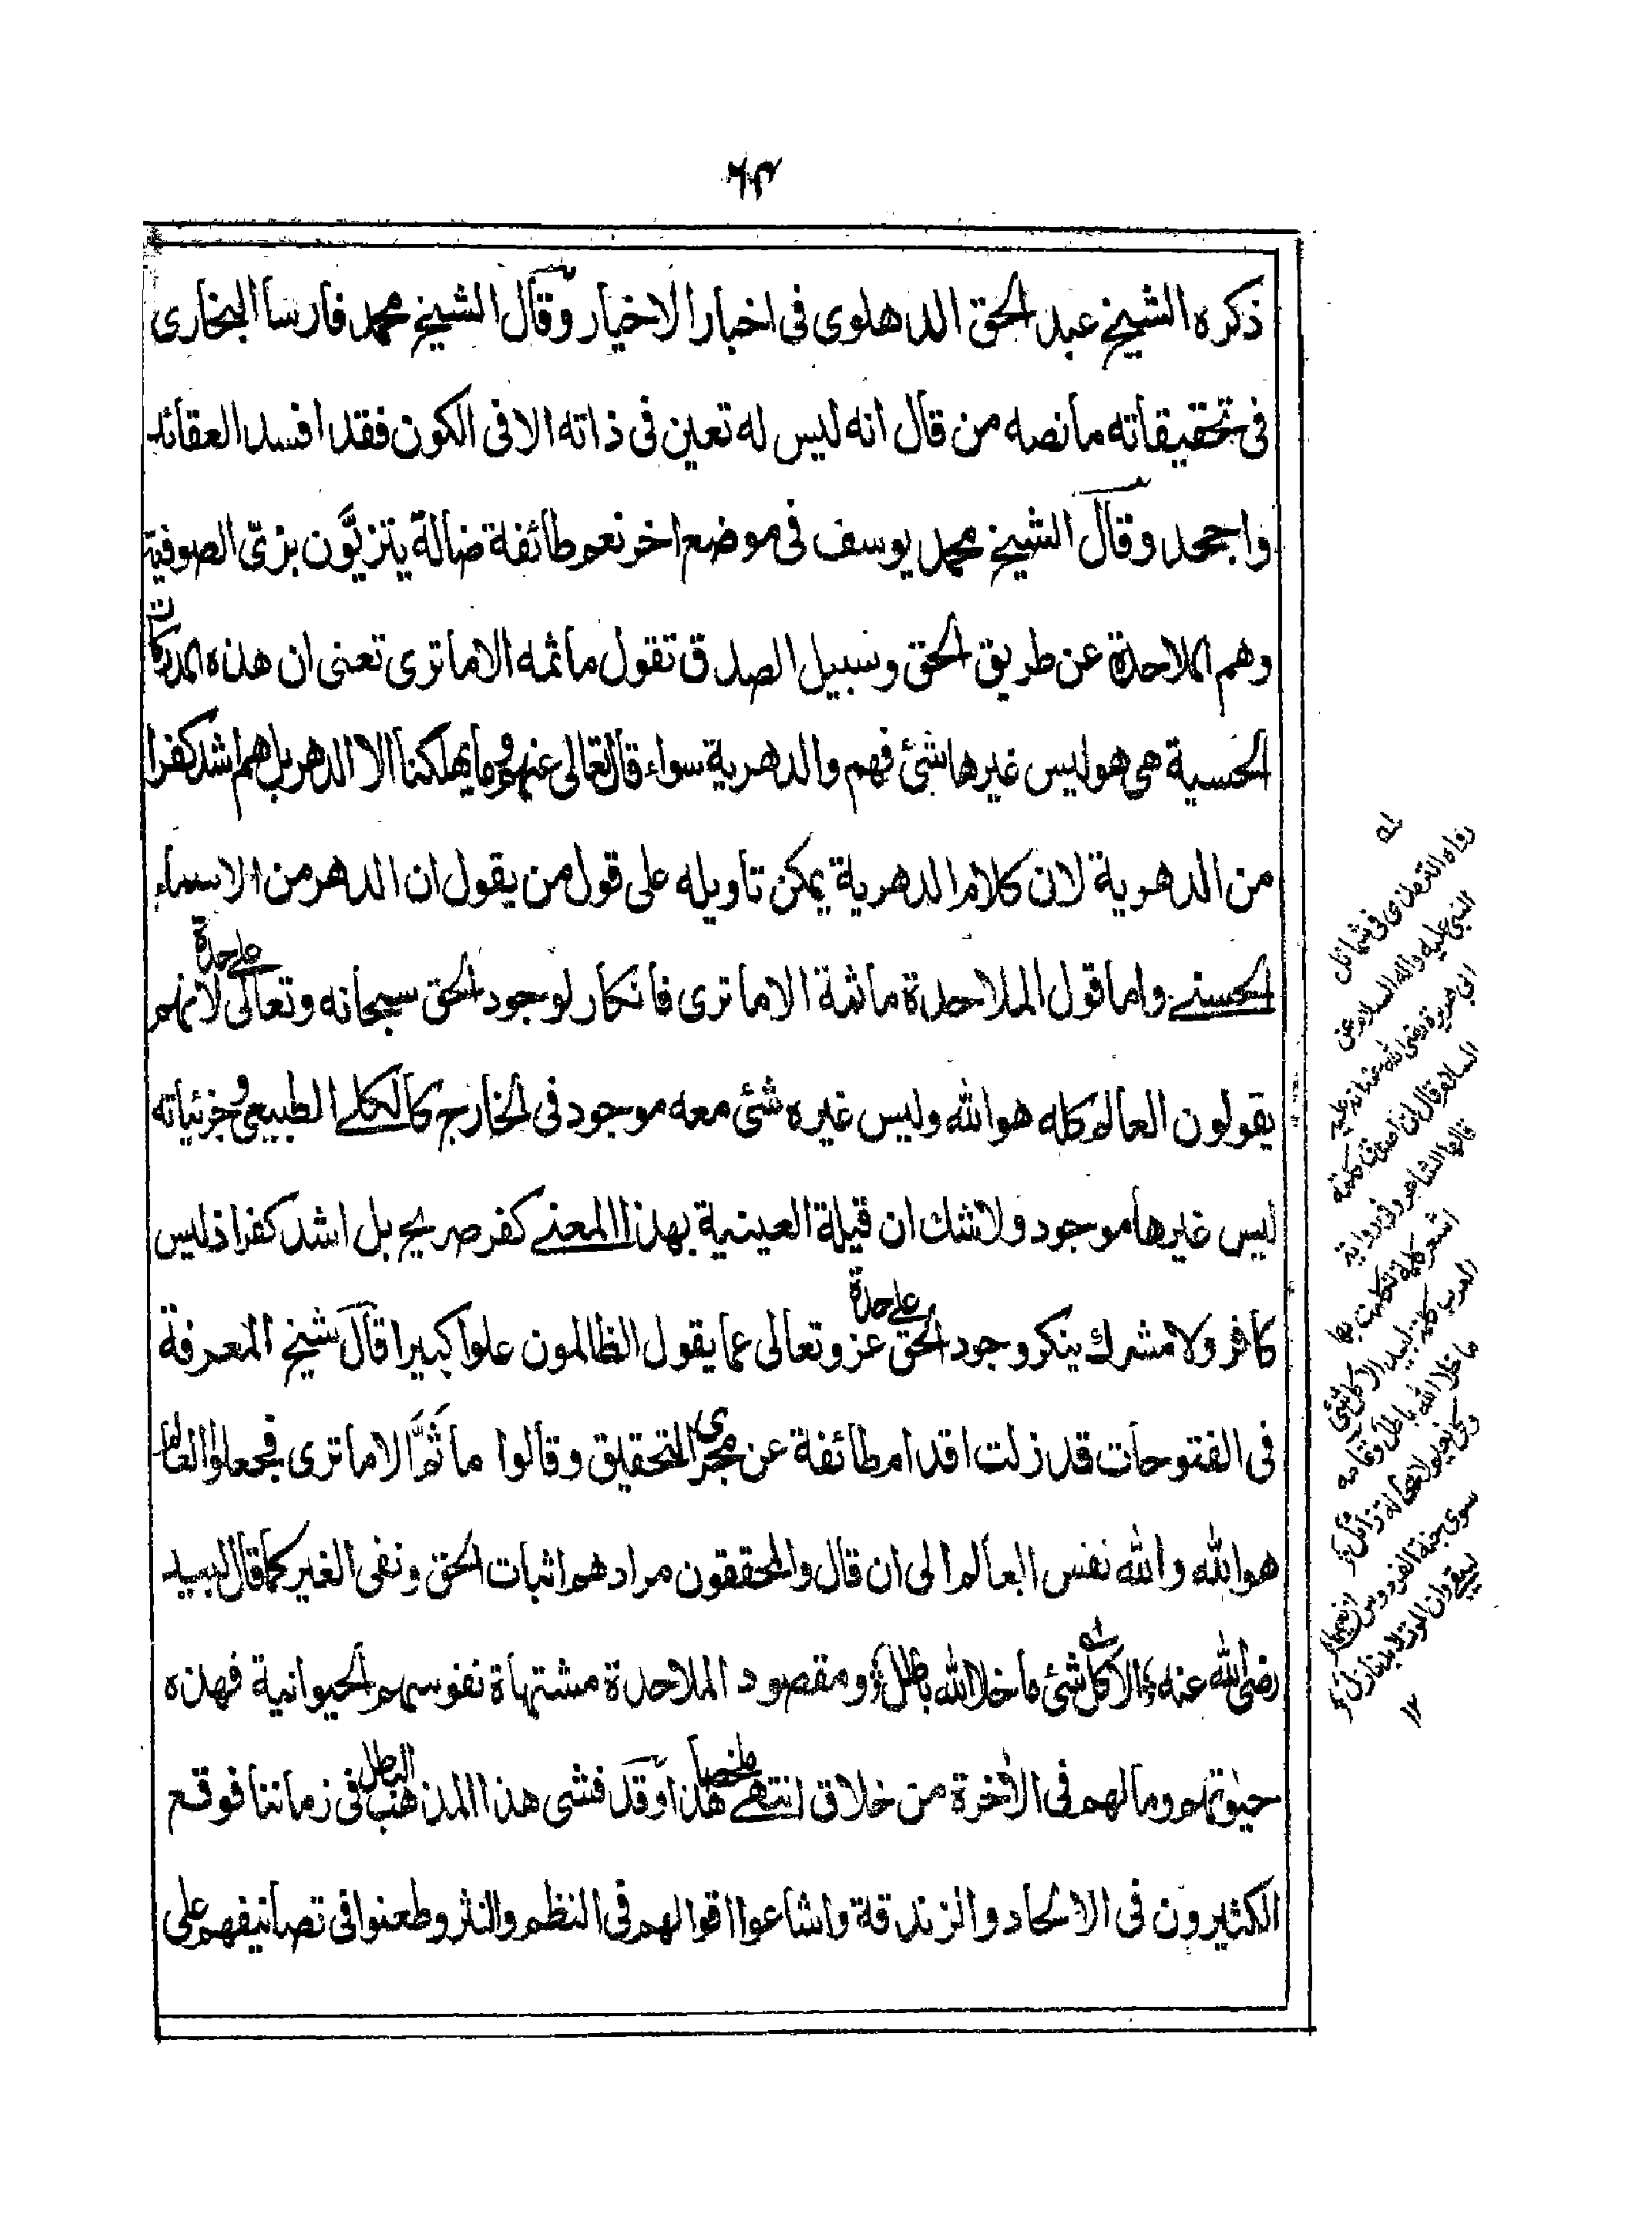 ٦٣
ذكره الشيخ عبد الحق الدهلوى فى اخبار الاخيار وقال الشيخ محمد فارسا البخارى
فى تحقيقاته ما نصه من قال انه ليس له تعين فى ذاته الا فى الكون فقد افسد العقائد
واجحد وقال الشيخ محمد يوسف فى موضع اخر نعم طائفة ضالة يتزيَّون بزىّ الصوفية
وهم الملاحدة عن طريق الحق وسبيل الصدق تقول ما ثمه الا ما ترى تعنى ان هذه المدركات
الحسية هى هو ليس غيرها شئ فهم والدهرية سواء قال تعالى عنهم وما يهلكنا الا الدهر بل هم اشد كفرا
من الدهرية لان كلام الدهرية يمكن تاويله على قول من يقول ان الدهر من الاسماء
الحسنے واما قول الملاحدة ما ثمة الا ما ترى فانكار لوجود الحق سبحانه وتعالى علےحدة لانهم
يقولون العالم كله هو الله وليس غيره شئ معه موجود فى الخارج كالكلے الطبيعى وجزئياته
ليس غيرها موجود ولا شك ان قيلة العينية بهذا المعنے كفر صريح بل اشد كفرا ذ ليس
كافر ولا مشرك ينكر وجود الحق علےحدة عز وتعالى عما يقول الظالمون علوا كبيرا قال شيخ المعرفة
فى الفتوحات قد زلت اقدام طائفة عن مجرى التحقيق وقالوا ما ثَمَّ الا ما ترى فجعلوا العالم
هو الله والله نفس العالم الى ان قال والمحققون مرادهم اثبات الحق ونفى الغير كما قال لبيد
رضى الله عنه ع الا كل شئ ما خلا الله باطل ؤ ومقصود الملاحدة مشتهاة نفوسهم الحيوانية فهذه
حيٰوتهم وما لهم فى الاٰخرة من خلاق انتهےٰ ملخصا هذا وقد فشى هذا المذهب الباطل فى زماننا فوقع
الكثيرون فى الالحاد والزندقة واشاعوا اقوالهم فى النظم والنثر وطعنوا فى تصانيفهم على
له
رواه الترمذى فى شمائل
النبى عليه واله السلام عن
ابى هريرة رضى الله عنه انه عليه
السلام قال ان اصدق كلمة
قالها الشاعر وفى رواية
اشعر كلمة تكلمت بها
العرب كلمة لبيد الا كل شئ
ما خلا الله باطل وتمامه
وكل نعيم لا محالة زائل
سوى جنة الفردوس
١٢